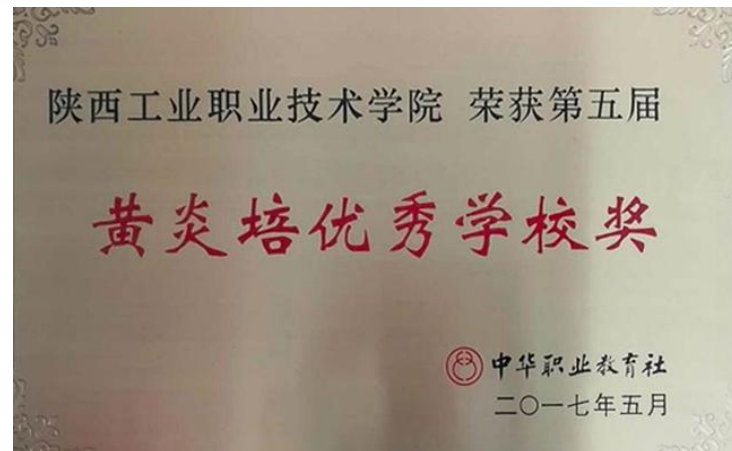 陕西工业职业技术学院 荣获第五届
黄炎培优秀学校奖
中华职业教育社
二〇一七年五月